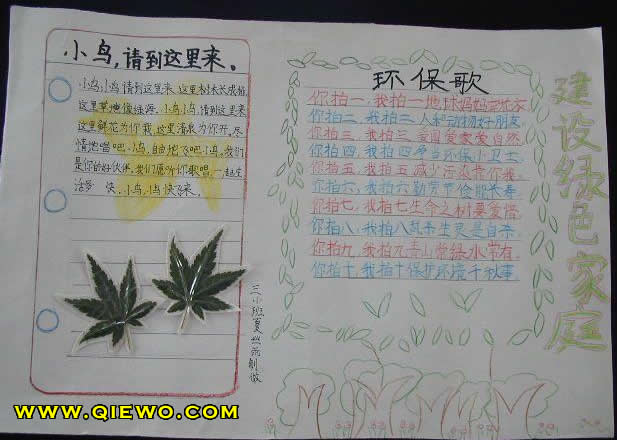 小鸟,请到这里来。
小鸟小鸟请到这里来,这里树木长成林,
这里草地像绿海。小鸟小鸟,请到这里来
这里鲜花为你栽,这里清泉为你开,尽
情地唱吧,小鸟,自由地飞吧,小鸟,我们
是你的好伙伴,我们愿听你歌唱,一起生
活多 快,小鸟,小鸟快飞来。
三小班夏 制做
环保歌
你拍一,我拍一地球妈妈
你拍二,我拍二人和动物好朋友
你拍三,我拍三爱国爱家爱自然
你拍四,我拍四争当环保小卫士
你拍五,我拍五减少污染靠你我
你拍六,我拍六勤劳节俭能长寿
你拍七,我拍七生命之树要爱惜
你拍八,我拍八乱杀生灵是自杀
你拍九,我拍九青山常绿水常有
你拍十,我拍十保护环境千秋事
建设绿色家庭
WWW.QIEWO.COM